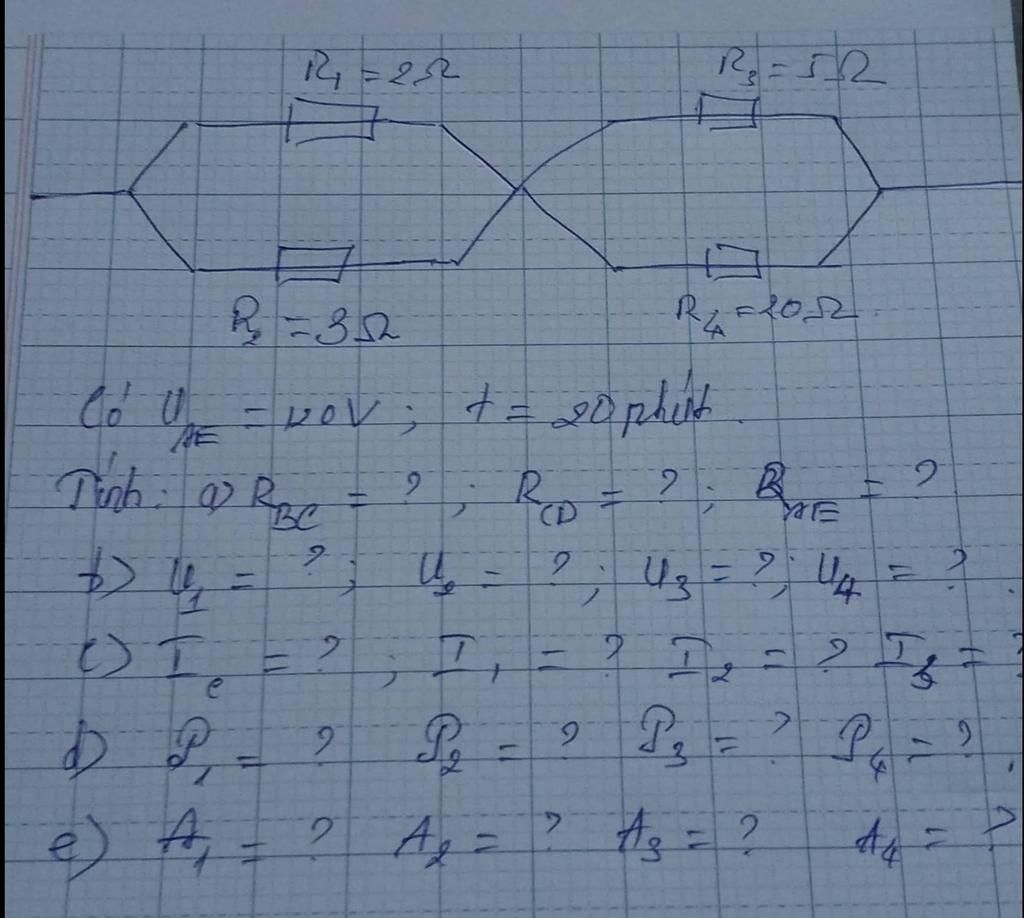 R₁ = 2Ω R₃ = 5Ω
R₂ = 3Ω R₄ = 20Ω
Có U_AE = 120V; t = 20 phút.
Tính: a) R_BC = ? ; R_CD = ? ; R_AE = ?
b) U₁ = ? ; U₂ = ? ; U₃ = ? ; U₄ = ?
c) I_c = ? ; I₁ = ? I₂ = ? I₃ = ?
d) P₁ = ? P₂ = ? P₃ = ? P₄ = ?
e) A₁ = ? A₂ = ? A₃ = ? A₄ = ?